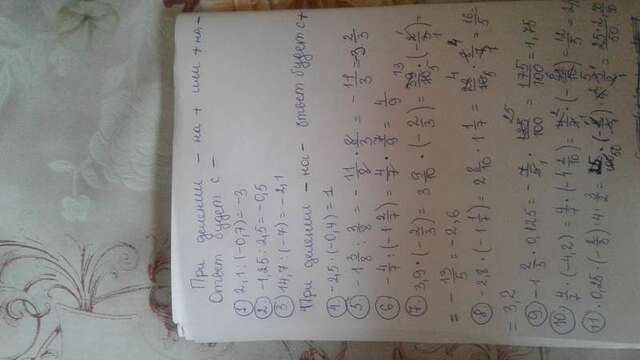 При делении – на + или + на –
Ответ будет с –
① 2,1 : (-0,7) = -3
② -1,25 : 2,5 = -0,5
③ 14,7 : (-7) = -2,1
При делении – на – ответ будет с +
④ -2,5 · (-0,4) = 1
⑤ -1 3/8 : 3/8 = - 11/8 · 8/3 = - 11/3 = 3 2/3
⑥ - 4/7 : (-1 2/7) = 4/7 · 7/9 = 4/9
⑦ 3,9 · (- 2/3) = 3 9/10 · (- 2/3) = 39/10 · (- 2/3) =
= - 13/5 = -2,6
⑧ -2,8 · (-1 1/7) = 2 8/10 · 1 1/7 = 28/10 · 8/7 = 16/5
= 3,2
⑨ -1 2/5 · 0,125 = - 7/5 · 125/100 = 175/100 = 1,75
⑩ 4/7 · (-4,2) = 4/7 · (-4 2/10) = 4/7 · (- 42/10) = 12/5 =
⑪ · 0,25 · (- 2/3) · 4 · 3/2 =